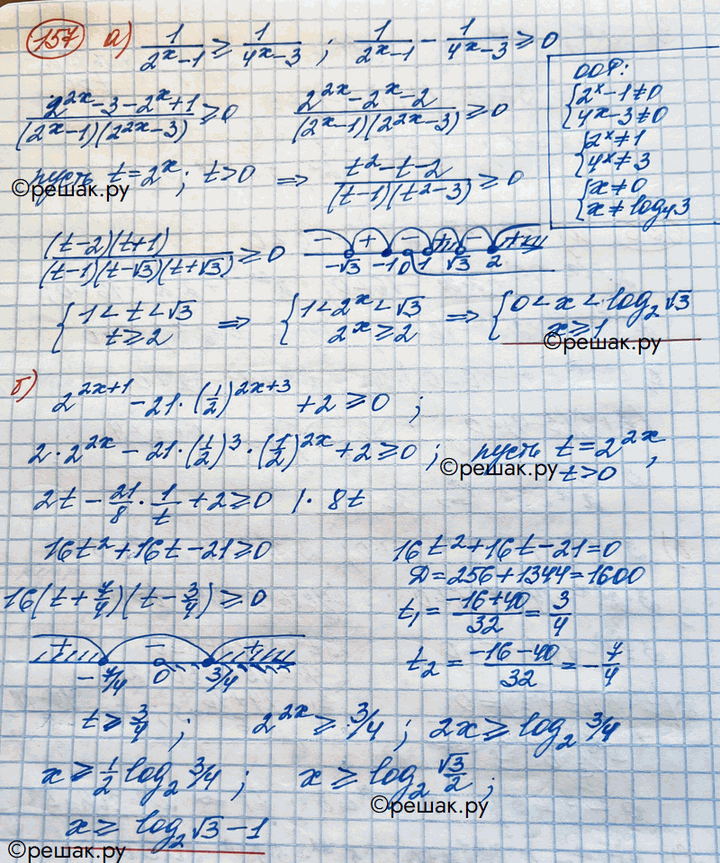 157 а) 1/(2^x-1) ≥ 1/(4^x-3) ; 1/(2^x-1) - 1/(4^x-3) ≥ 0
(2^2x-3-2^x+1)/((2^x-1)(2^2x-3)) ≥ 0 (2^2x-2^x-2)/((2^x-1)(2^2x-3)) ≥ 0
ООР:
{2^x-1≠0
4^x-3≠0
{2^x≠1
4^x≠3
{x≠0
x≠log_4 3
пусть t=2^x; t>0 ⇒ (t^2-t-2)/((t-1)(t^2-3)) ≥ 0
©решак.ру
((t-2)(t+1))/((t-1)(t-√3)(t+√3)) ≥ 0
- + - - +
-√3 -1 0 1 √3 2
{1<t<√3
t≥2 ⇒ {1<2^x<√3
2^x≥2 ⇒ {0<x<log_2 √3
x≥1
©решак.ру
б) 2^(2x+1) - 21·(1/2)^(2x+3) + 2 ≥ 0 ;
2·2^2x - 21·(1/2)^3·(1/2)^2x + 2 ≥ 0 ; пусть t=2^2x,
t>0
©решак.ру
2t - 21/8 · 1/t + 2 ≥ 0 |· 8t
16t^2+16t-21≥0
16(t+7/4)(t-3/4) ≥ 0
16t^2+16t-21=0
D=256+1344=1600
t_1=(-16+40)/32=3/4
t_2=(-16-40)/32=-7/4
+ - +
-7/4 0 3/4
t≥3/4 ; 2^2x≥3/4 ; 2x≥log_2 3/4
x≥1/2 log_2 3/4 ; x≥log_2 √3/2 ;
©решак.ру
x≥log_2 √3-1
©решак.ру